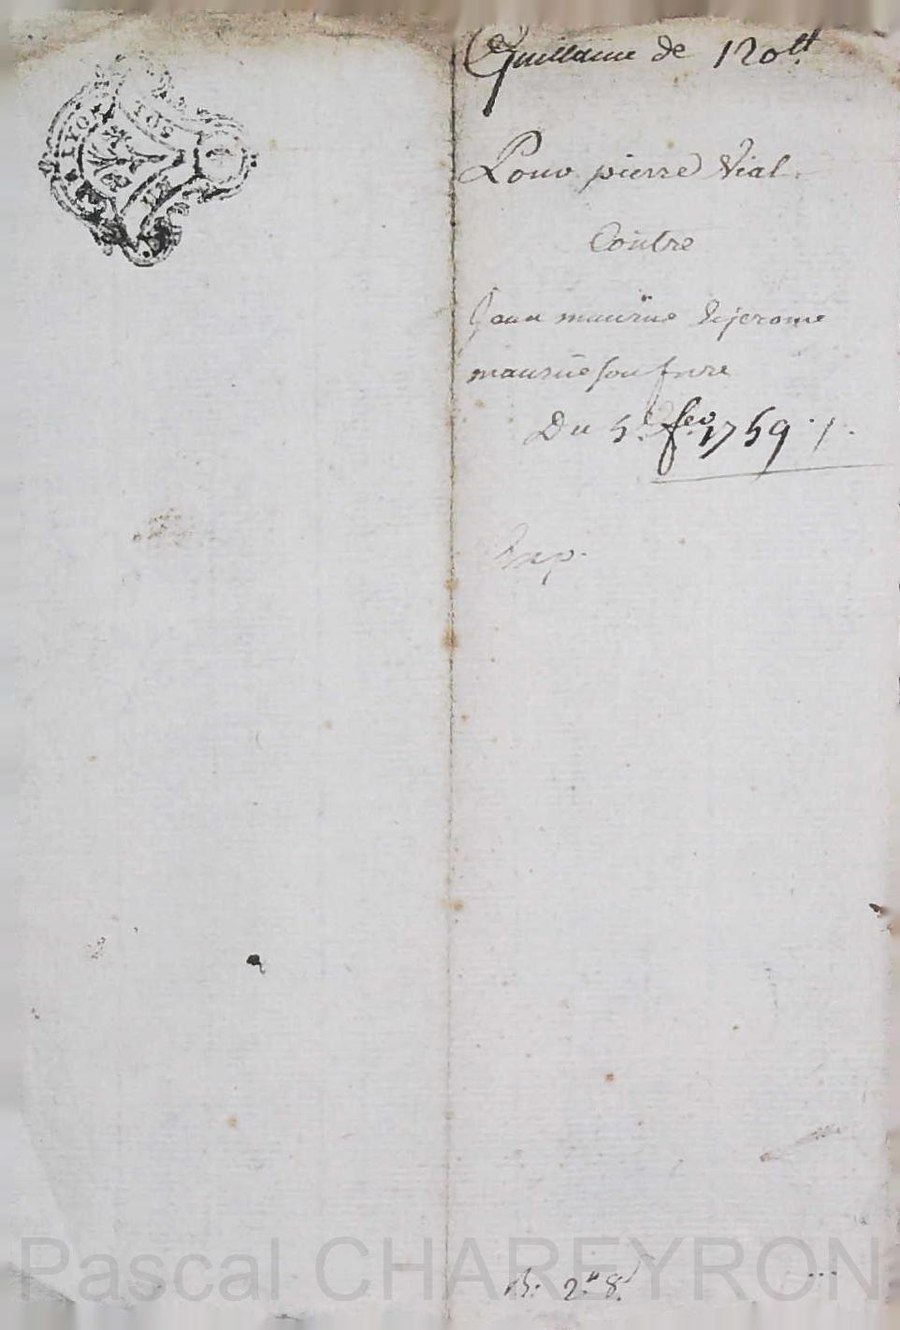 Quittance de 120lt
Pour pierre Vial.
Contre
Jean maurin & jerome
maurin son frere
Du 5e. feo. 1759 ./.
Exp.
B. 2lt 8s.
Pascal CHAREYRON